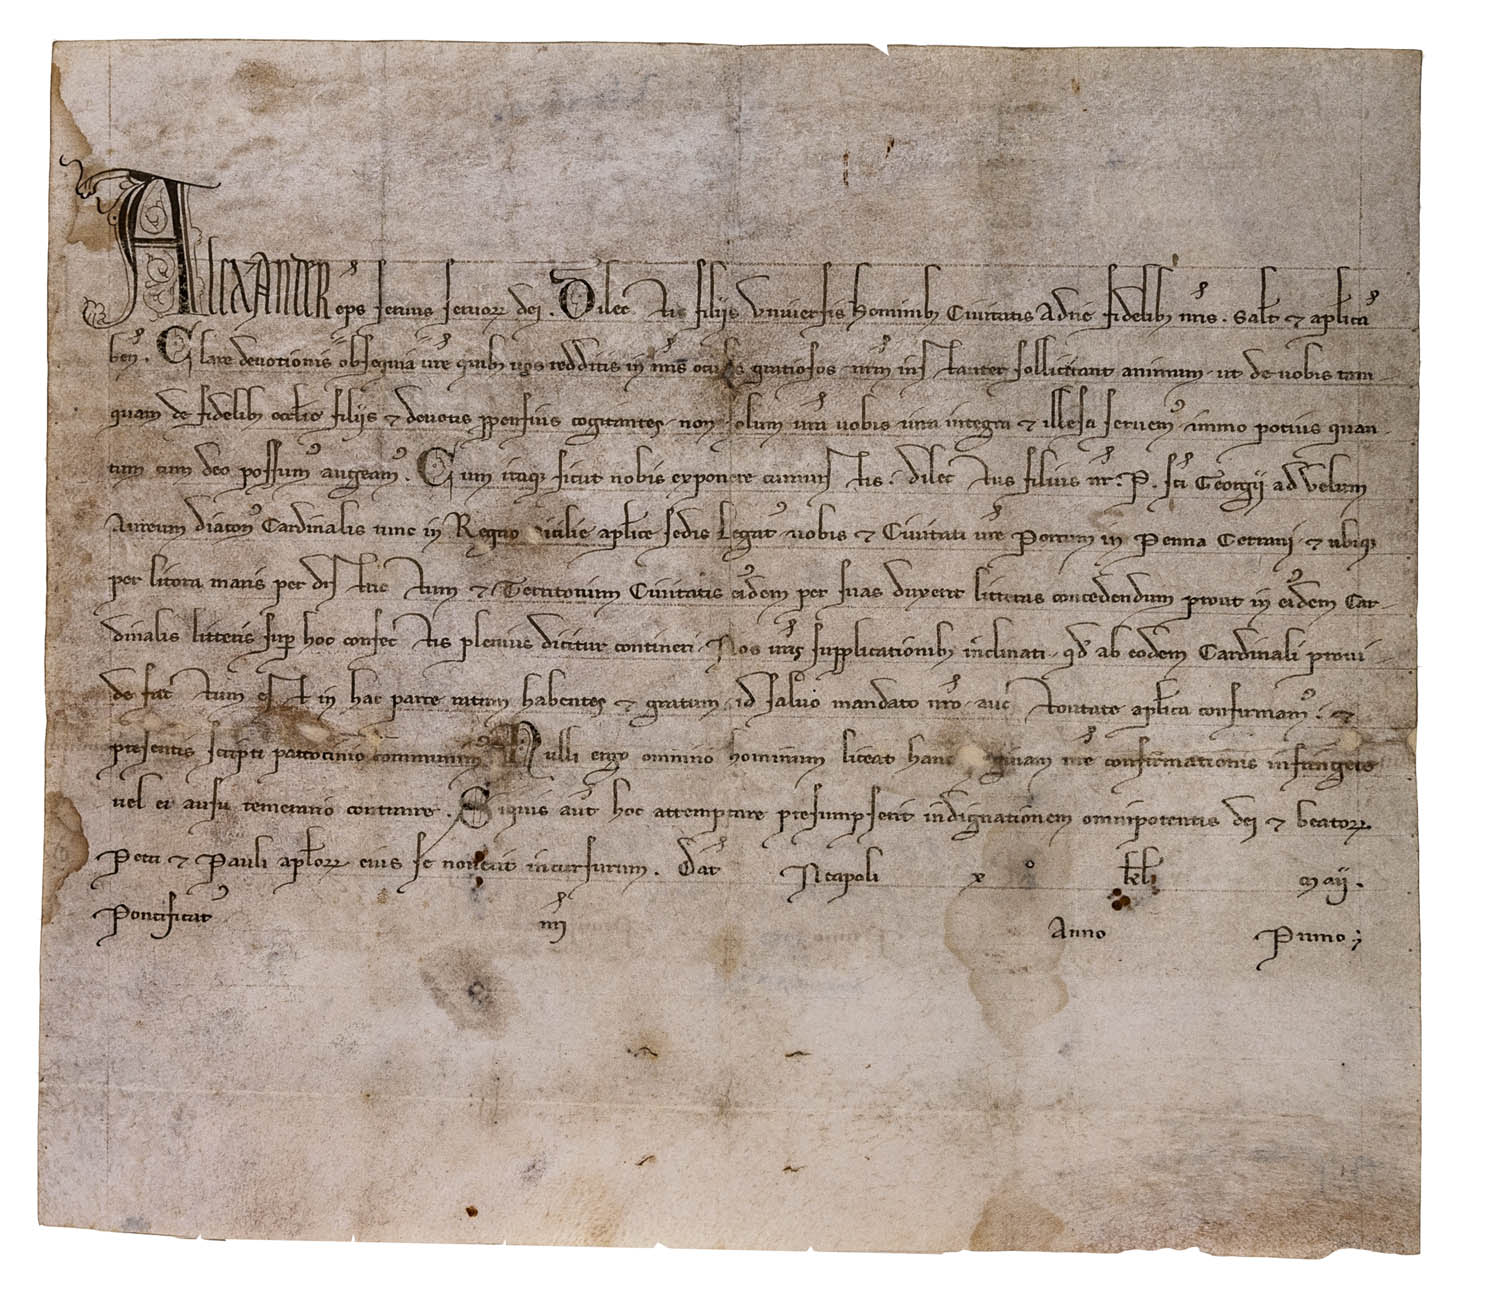 ALEXANDER eps seruus seruoꝝ dei. Dilectis filijs Vniuersis hominibꝫ Ciuitatis Adrie fidelibꝫ nr̃is. Salt̃ ⁊ aplicã
ben̄. Clare deuotionis obsequia ur̃e quibꝫ uos redditis in nr̃is oculis gratiosos nr̃m instanter sollicitant animum ut de uobis tam
quam de fidelibꝫ ecclie filijs ⁊ deuotis ꝓpensius cogitantes non solum ur̃a uobis iura integra ⁊ illesa seruem᾽ immo potius quan-
tum cum deo possum᾽ augeam᾽. Cum itaqꝫ sicut nobis exponere curastis. dilectus filius nr̃. P. sc̃i Georgij ad Velum
Aureum diacon᾽ Cardinalis tunc in Regno Sicilie aplice sedis Legat᾽ uobis ⁊ Ciuitati ur̃e Portum in Penna Cerrani ⁊ ubiqꝫ
per litora maris per districtum ⁊ Territorium Ciuitatis eiusdem per suas duxerit litteras concedendum prout in eisdem Car-
dinalis litteris suꝑ hoc confectis plenius dicitur contineri. Nos ur̃is supplicationibꝫ inclinati. qd̃ ab eodem Cardinali proui-
de factum est in hac parte ratum habentes ⁊ gratum id saluo mandato nr̃o auctoritate aplica confirmam᾽. ⁊
presentis scripti patrocinio communim᾽. Nulli ergo omnino hominum liceat hanc paginam nr̃e confirmationis infringere
uel ei ausu temerario contraire. Siquis aut̃ hoc attemptare presumpserit indignationem omnipotentis dei ⁊ beatoꝝ
Petri ⁊ Pauli aploꝝ eius se nouerit incursurum. Dat̃ Neapoli x° kl̃ maij.
Pontificat᾽ nr̃i Anno Primo;